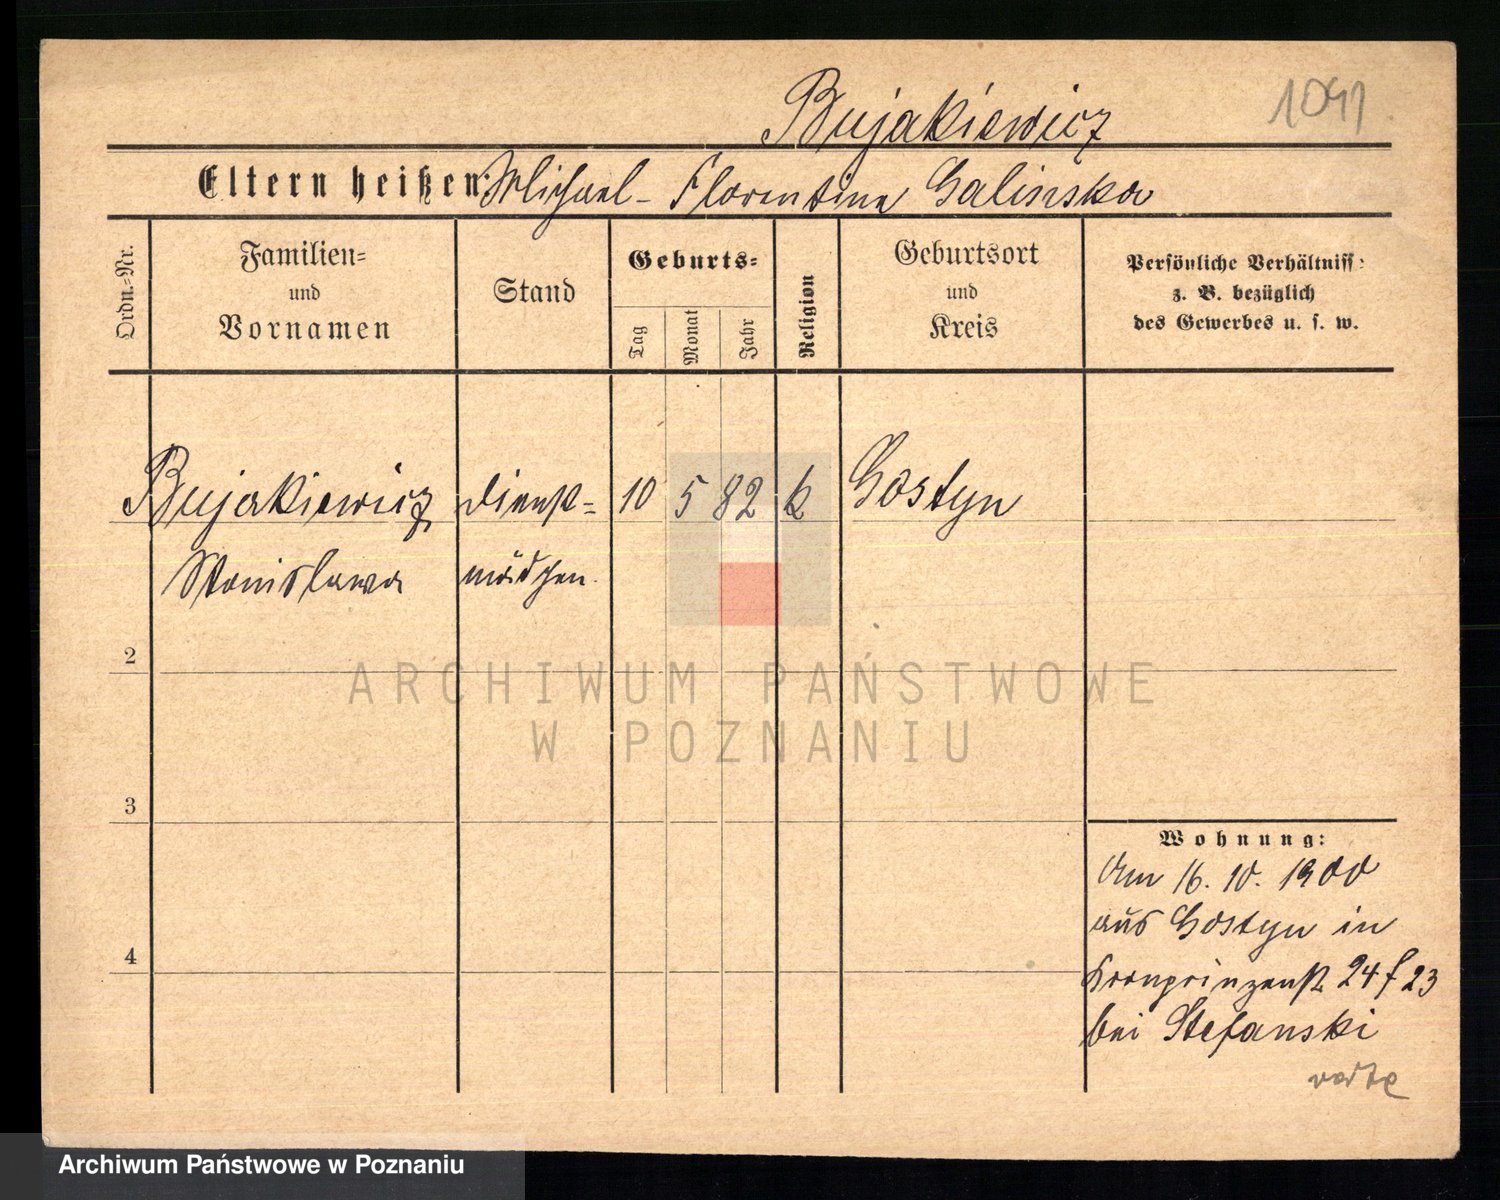 Bujakiewicz
1091
Eltern heißen: Michael - Florentina Galinska
Ordn.-Nr.
Familien=
und
Vornamen
Stand
Geburts=
Tag
Monat
Jahr
Religion
Geburtsort
und
Kreis
Persönliche Verhältniss:
z. B. bezüglich
des Gewerbes u. s. w.
Bujakiewicz Dienst= 10 5 82 k Gostyn
Stanislawa mädchen.
2
3
4
Wohnung:
Am 16. 10. 1900
aus Gostyn in
Kronprinzenst 24 f 23
bei Stefanski
ARCHIWUM PAŃSTWOWE
W POZNANIU
Archiwum Państwowe w Poznaniu